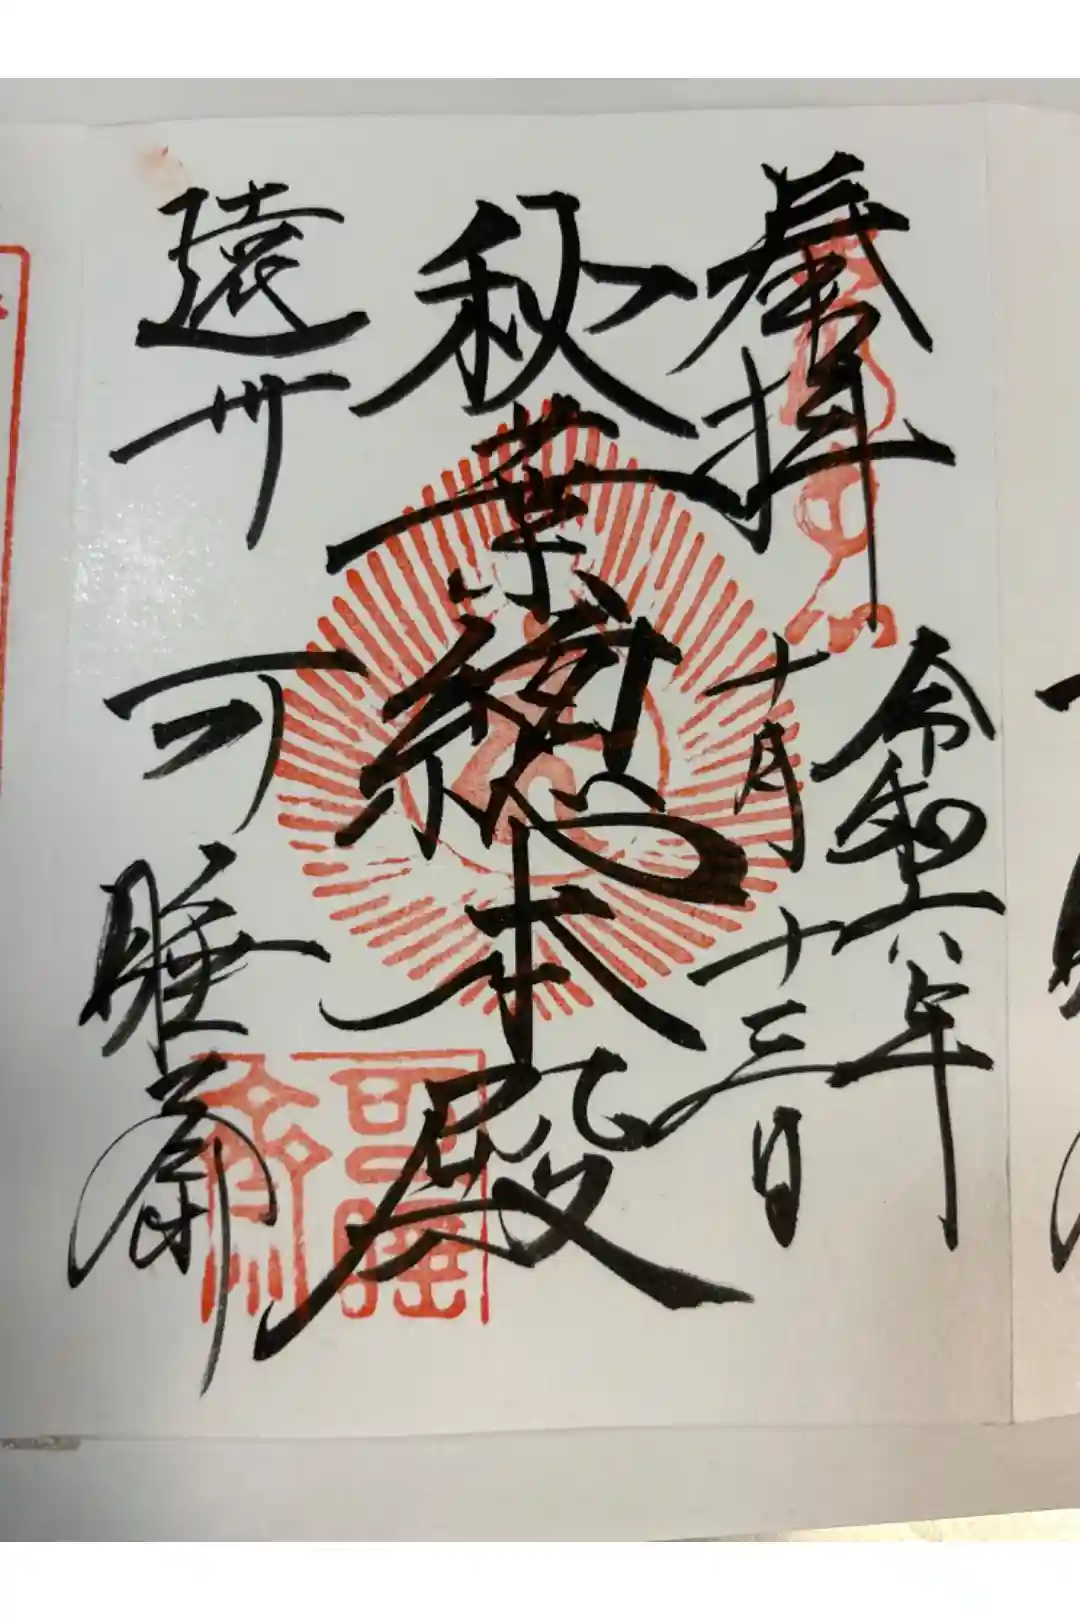 奉拝
令和六年
十月十三日
秋葉總本殿
遠州
可睡斎
可睡
斎